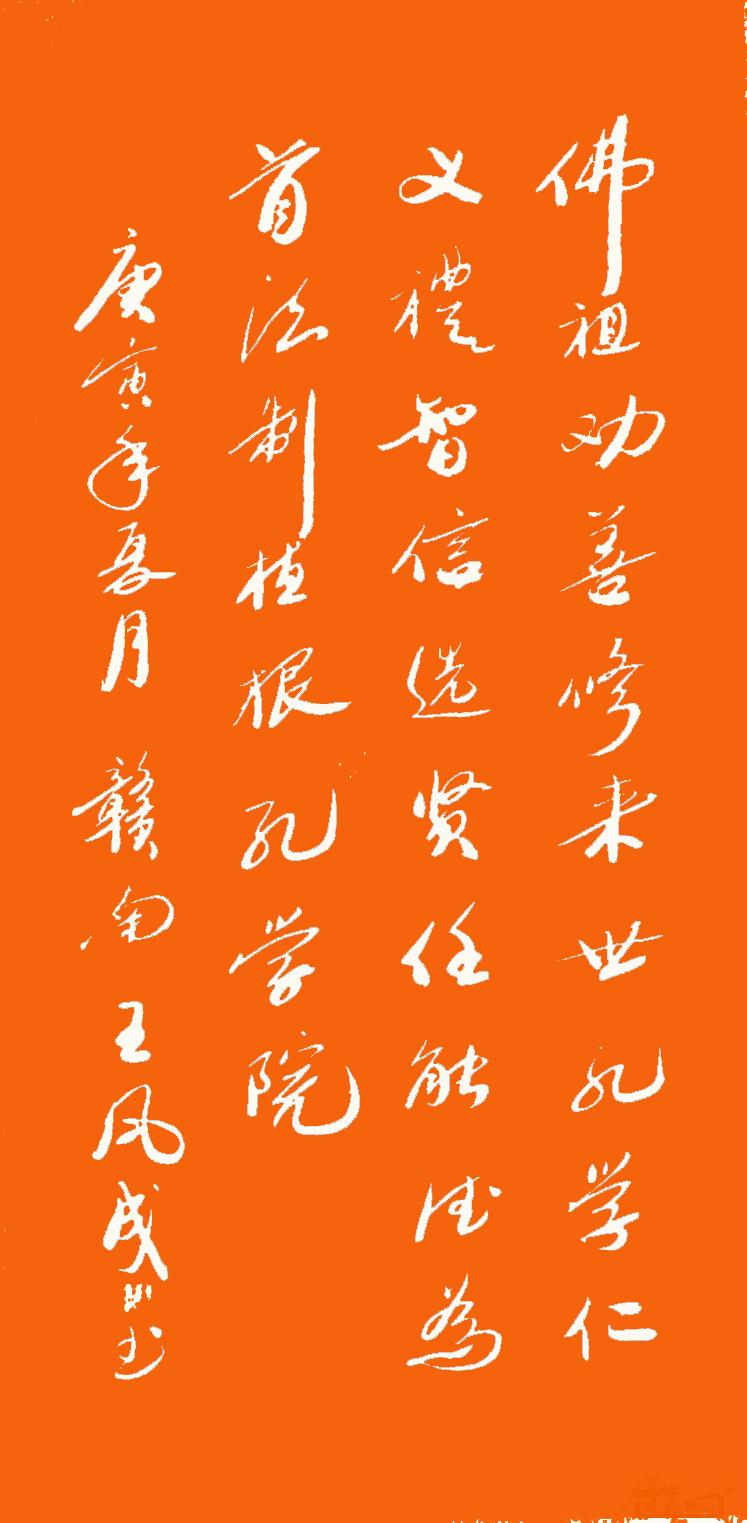 佛祖劝善修来世孔学仁
义禮智信选贤任能法为
首法制植根孔学院
庚寅年夏月 赣南 王风成 书